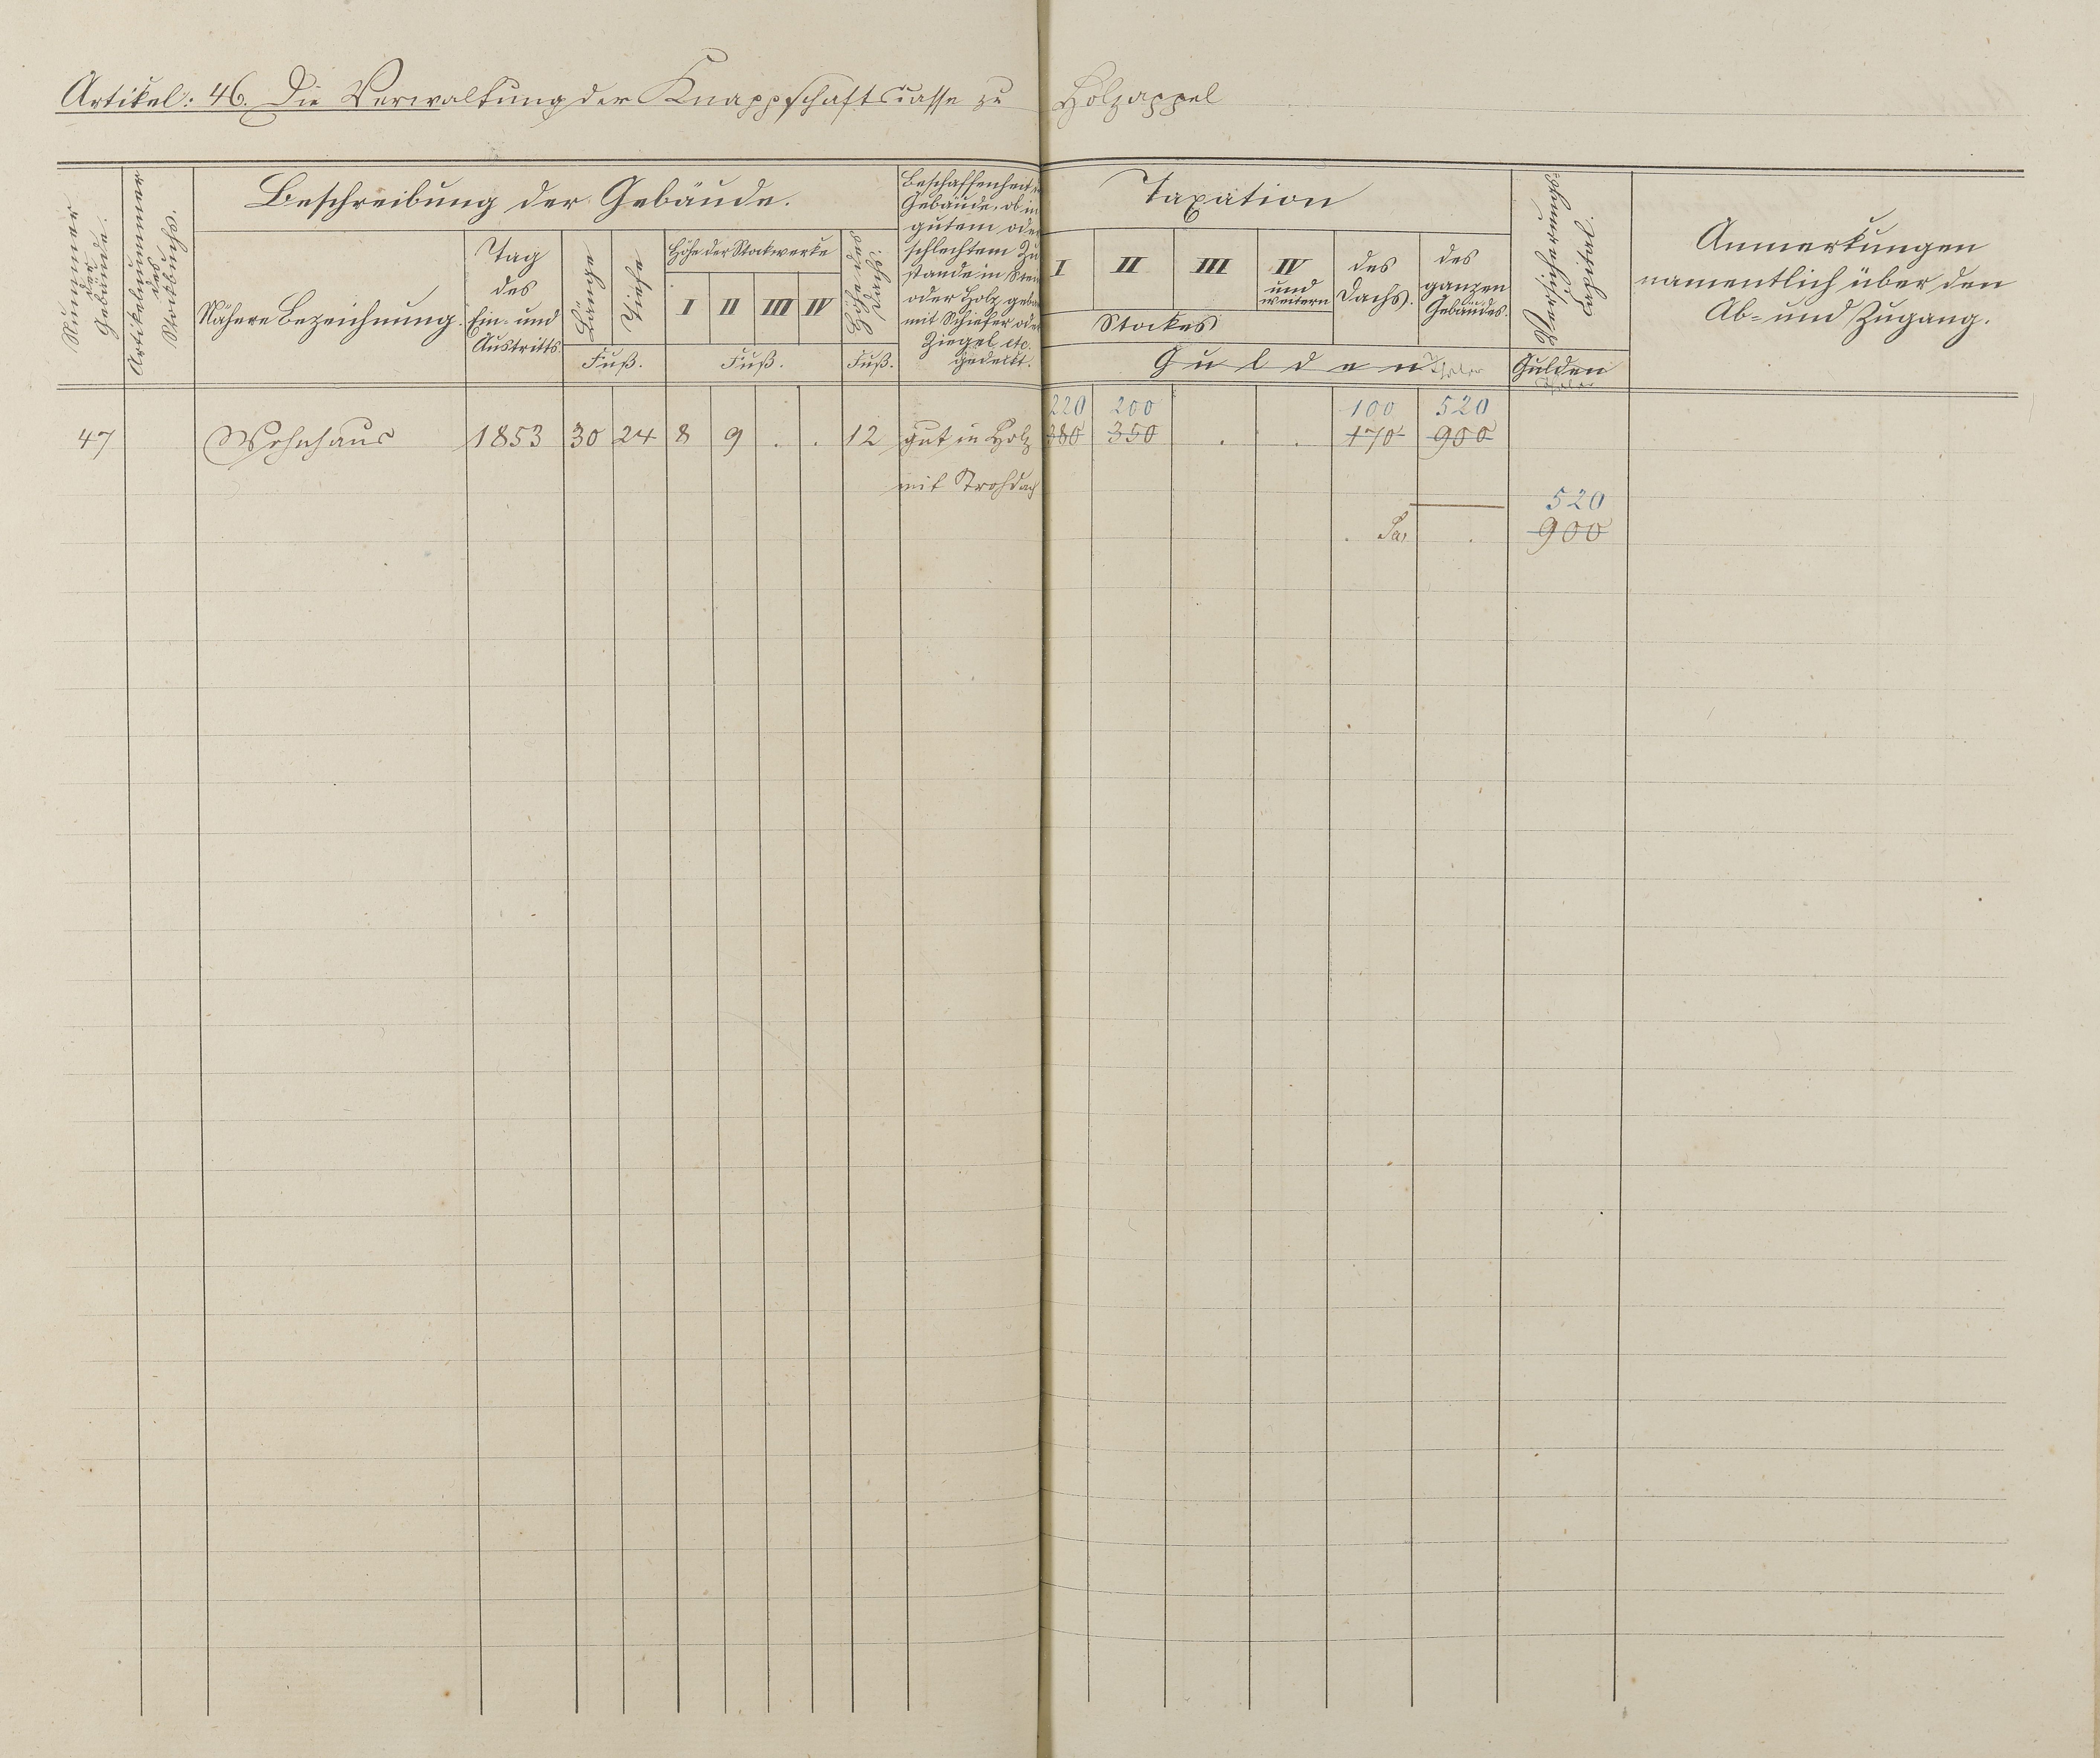 Artikel: 46. Die Verwaltung der Knappschaftscasse zu Holzappel
Nummer der Gebäude.
Artikelnummer des Stockbuchs.
Beschreibung der Gebäude.
Nähere Bezeichnung.
Tag
des
Ein- und
Austritts.
Länge
Tiefe
Fuß.
Höhe der Stockwerke
I II III IV
Fuß.
Höhe des Dachs.
Fuß.
Beschaffenheit der
Gebäude, ob in
gutem oder
schlechtem Zu
stande in Stein
oder Holz gebaut
mit Schiefer oder
Ziegel etc.
gedeckt.
Taxation
I II III IV
und
weitern
Stockes
des
Dachs.
des
ganzen
Gebäudes.
Gulden Thaler
Versicherungs Capital.
Gulden
Thaler
Anmerkungen
namentlich über den
Ab- und Zugang.
220 200 100 520
47 Wohnhaus 1853 30 24 8 9 . . 12 gut in Holz 380 350 . . 170 900
mit Strohdach
520
Sa. . 900